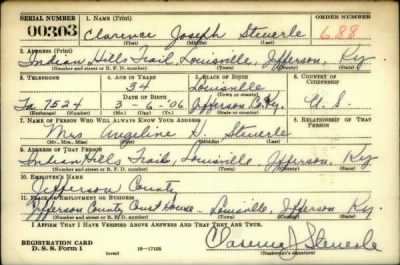 SERIAL NUMBER 1. NAME (Print) ORDER NUMBER
00303 Clarence Joseph Steuerle 688
(First) (Middle) (Last)
2. ADDRESS (Print)
Indian Hills Trail, Louisville, Jefferson, Ky
(Number and street or R. F. D. number) (Town) (County) (State)
3. TELEPHONE 4. AGE IN YEARS 5. PLACE OF BIRTH 6. COUNTRY OF CITIZENSHIP
34 Louisville
DATE OF BIRTH (Town or county)
Ta 7524 3-6-'06 Jefferson Co. Ky. U. S.
(Exchange) (Number) (Mo.) (Day) (Yr.) (State or country)
7. NAME OF PERSON WHO WILL ALWAYS KNOW YOUR ADDRESS 8. RELATIONSHIP OF THAT PERSON
Mrs Angeline H. Steuerle
(Mr., Mrs., Miss) (First) (Middle) (Last)
9. ADDRESS OF THAT PERSON
Indian Hills Trail, Louisville, Jefferson, Ky
(Number and street or R. F. D. number) (Town) (County) (State)
10. EMPLOYER'S NAME
Jefferson County
11. PLACE OF EMPLOYMENT OR BUSINESS
Jefferson County Court House - Louisville, Jefferson Ky.
(Number and street or R. F. D. number) (Town) (County) (State)
I AFFIRM THAT I HAVE VERIFIED ABOVE ANSWERS AND THAT THEY ARE TRUE.
REGISTRATION CARD
D. S. S. Form 1 (over) 16-17105 Clarence J Steuerle
(Registrant's signature)